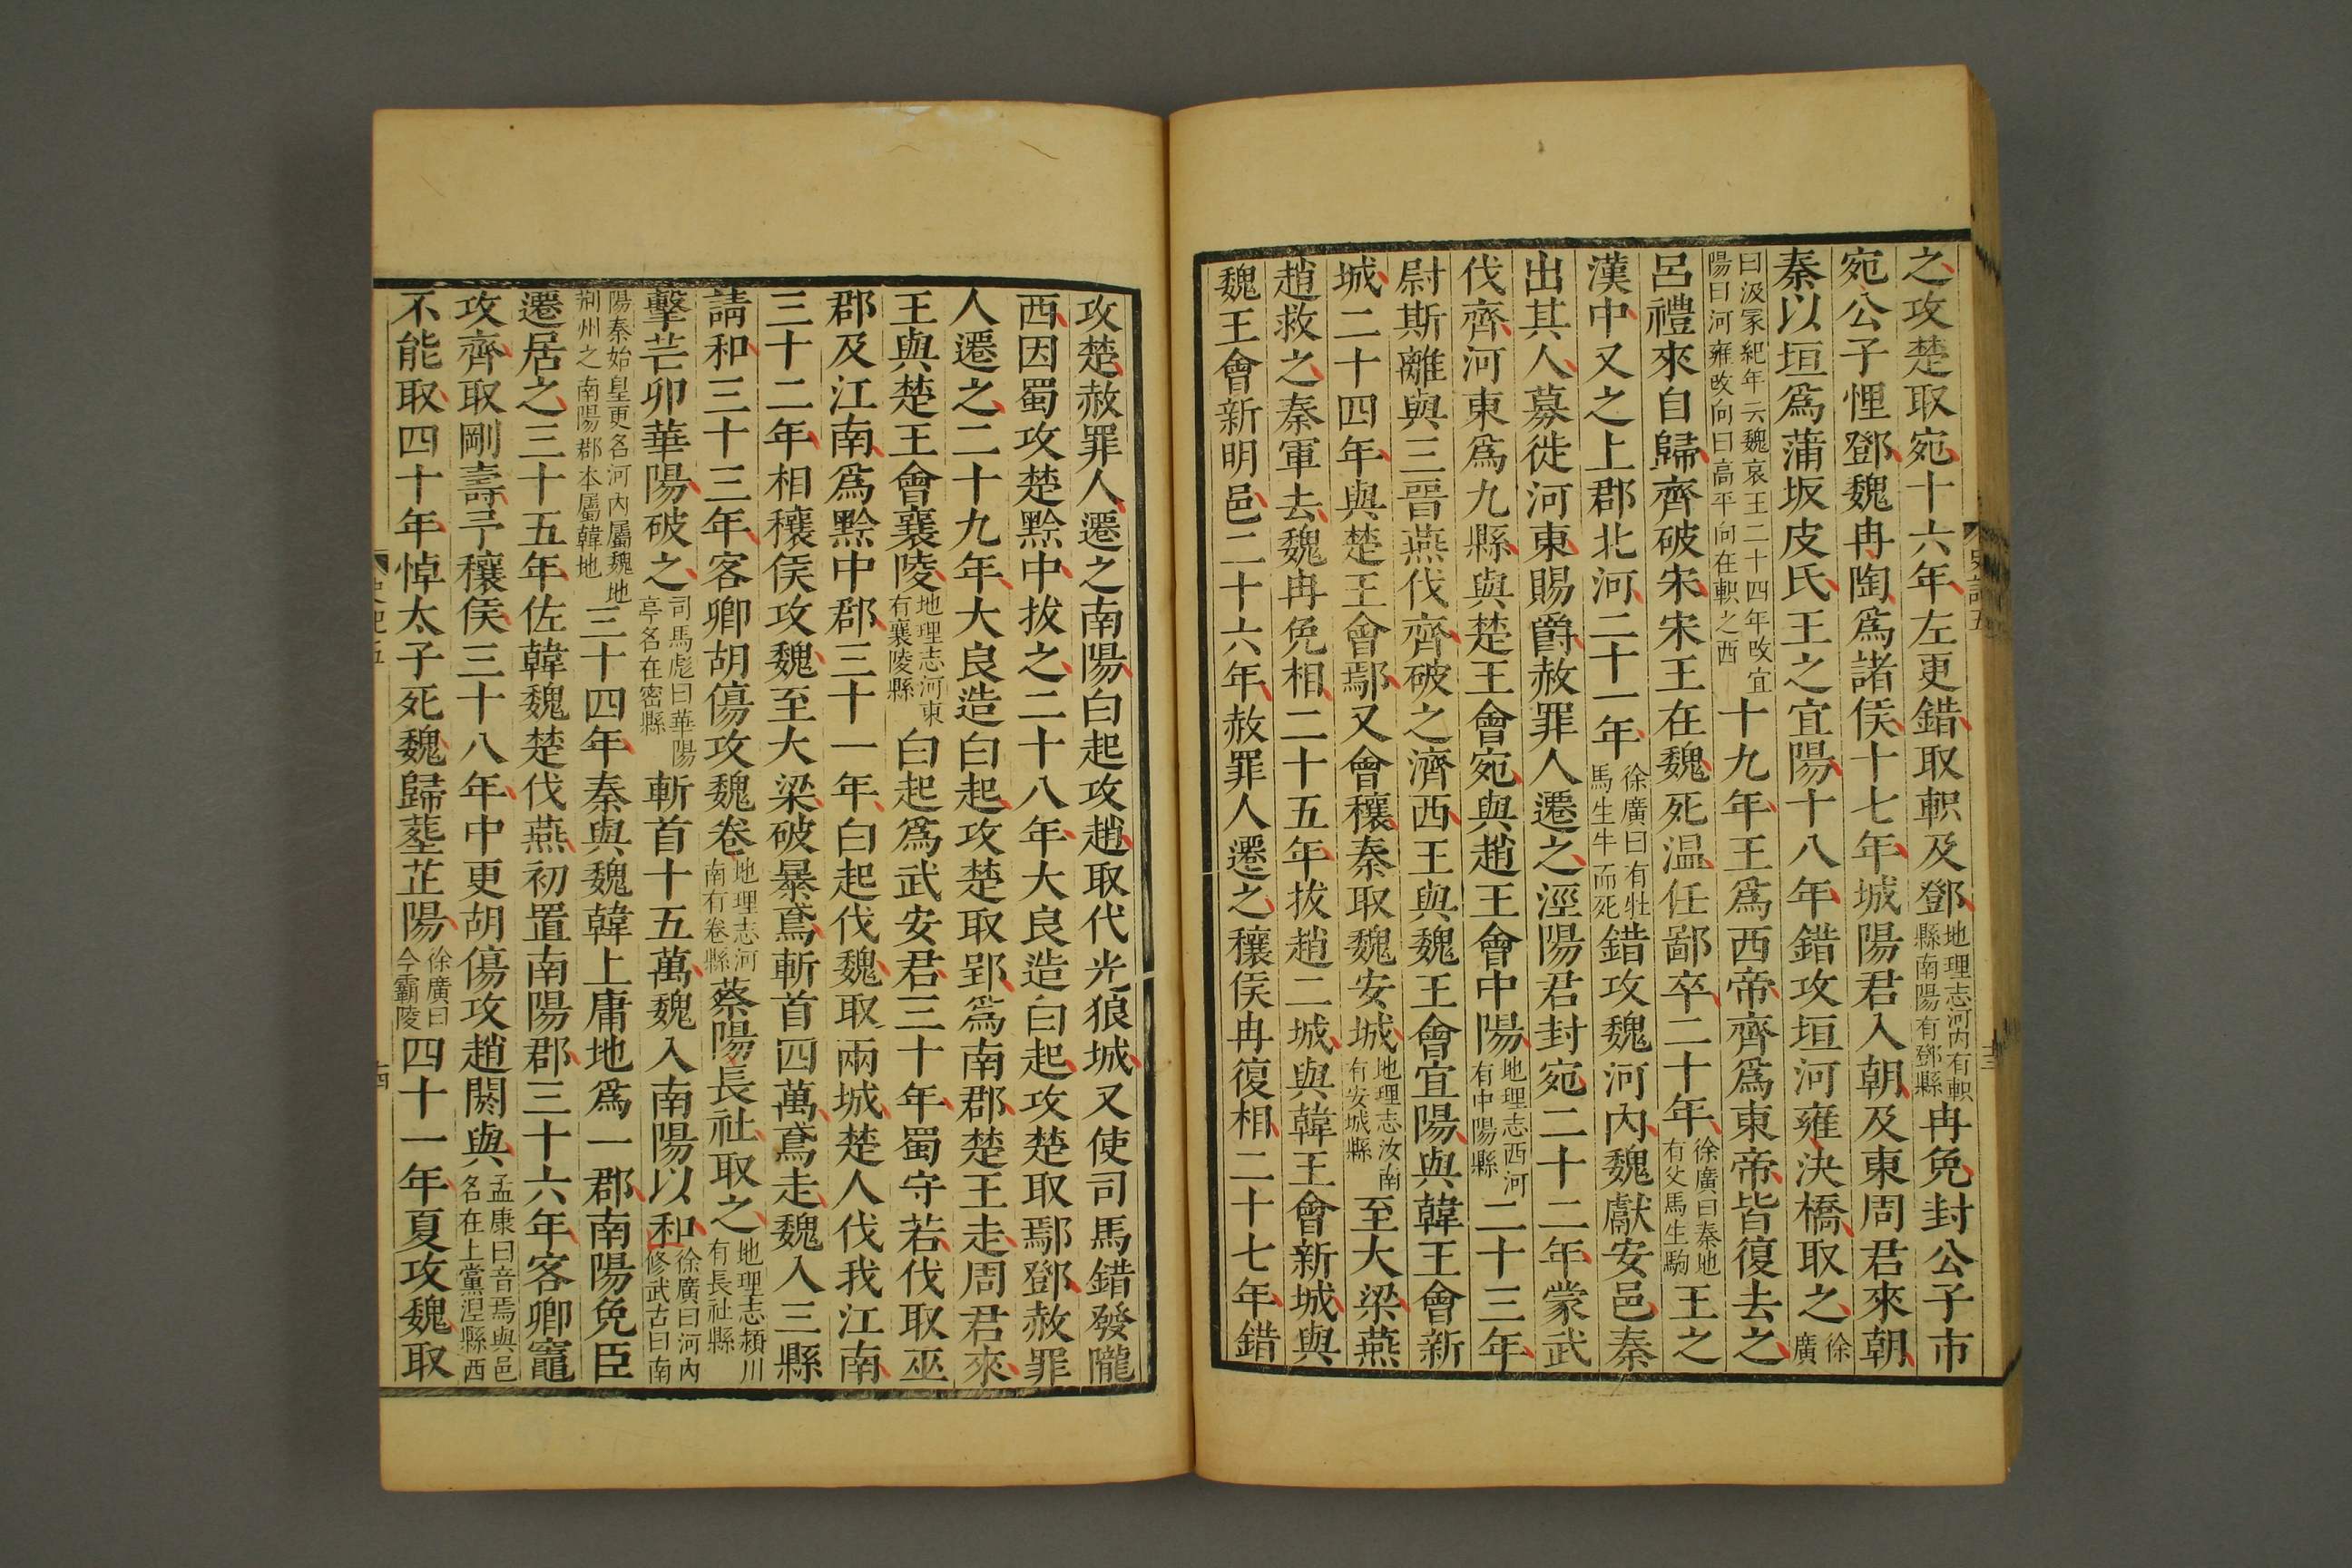 之攻楚取宛十六年左更錯取軹及鄧地理志河内有軹縣南陽有鄧縣冉免封公子市
宛公子悝鄧魏冉陶爲諸侯十七年城陽君入朝及東周君來朝
秦以垣爲蒲坂皮氏王之宜陽十八年錯攻垣河雍決橋取之徐廣
曰汲冢紀年云魏哀王二十四年改宜陽曰河雍改向曰高平向在軹之西十九年王爲西帝齊爲東帝皆復去之
呂禮來自歸齊破宋宋王在魏死温任鄙卒二十年徐廣曰秦地有父馬生駒王之
漢中又之上郡北河二十一年徐廣曰有牡馬生牛而死錯攻魏河内魏獻安邑秦
出其人募徙河東賜爵赦罪人遷之涇陽君封宛二十二年蒙武
伐齊河東爲九縣與楚王會宛與趙王會中陽地理志西河有中陽縣二十三年
尉斯離與三晉燕伐齊破之濟西王與魏王會宜陽與韓王會新
城二十四年與楚王會鄢又會穰秦取魏安城地理志汝南有安城縣至大梁燕
趙救之秦軍去魏冉免相二十五年拔趙二城與韓王會新城與
魏王會新明邑二十六年赦罪人遷之穰侯冉復相二十七年錯
史記五
十三
攻楚赦罪人遷之南陽白起攻趙取代光狼城又使司馬錯發隴
西因蜀攻楚黔中拔之二十八年大良造白起攻楚取鄢鄧赦罪
人遷之二十九年大良造白起攻楚取郢爲南郡楚王走周君來
王與楚王會襄陵地理志河東有襄陵縣白起爲武安君三十年蜀守若伐取巫
郡及江南爲黔中郡三十一年白起伐魏取兩城楚人伐我江南
三十二年相穰侯攻魏至大梁破暴鳶斬首四萬鳶走魏入三縣
請和三十三年客卿胡傷攻魏卷地理志河南有卷縣蔡陽長社取之地理志潁川有長社縣
擊芒卯華陽破之司馬彪曰華陽亭名在密縣斬首十五萬魏入南陽以和徐廣曰河内修武古曰南
陽秦始皇更名河内屬魏地荆州之南陽郡本屬韓地三十四年秦與魏韓上庸地爲一郡南陽免臣
遷居之三十五年佐韓魏楚伐燕初置南陽郡三十六年客卿竈
攻齊取剛壽予穰侯三十八年中更胡傷攻趙閼與孟康曰音焉與邑名在上黨涅縣西
不能取四十年悼太子死魏歸葬芷陽徐廣曰今霸陵四十一年夏攻魏取
史記五
十四